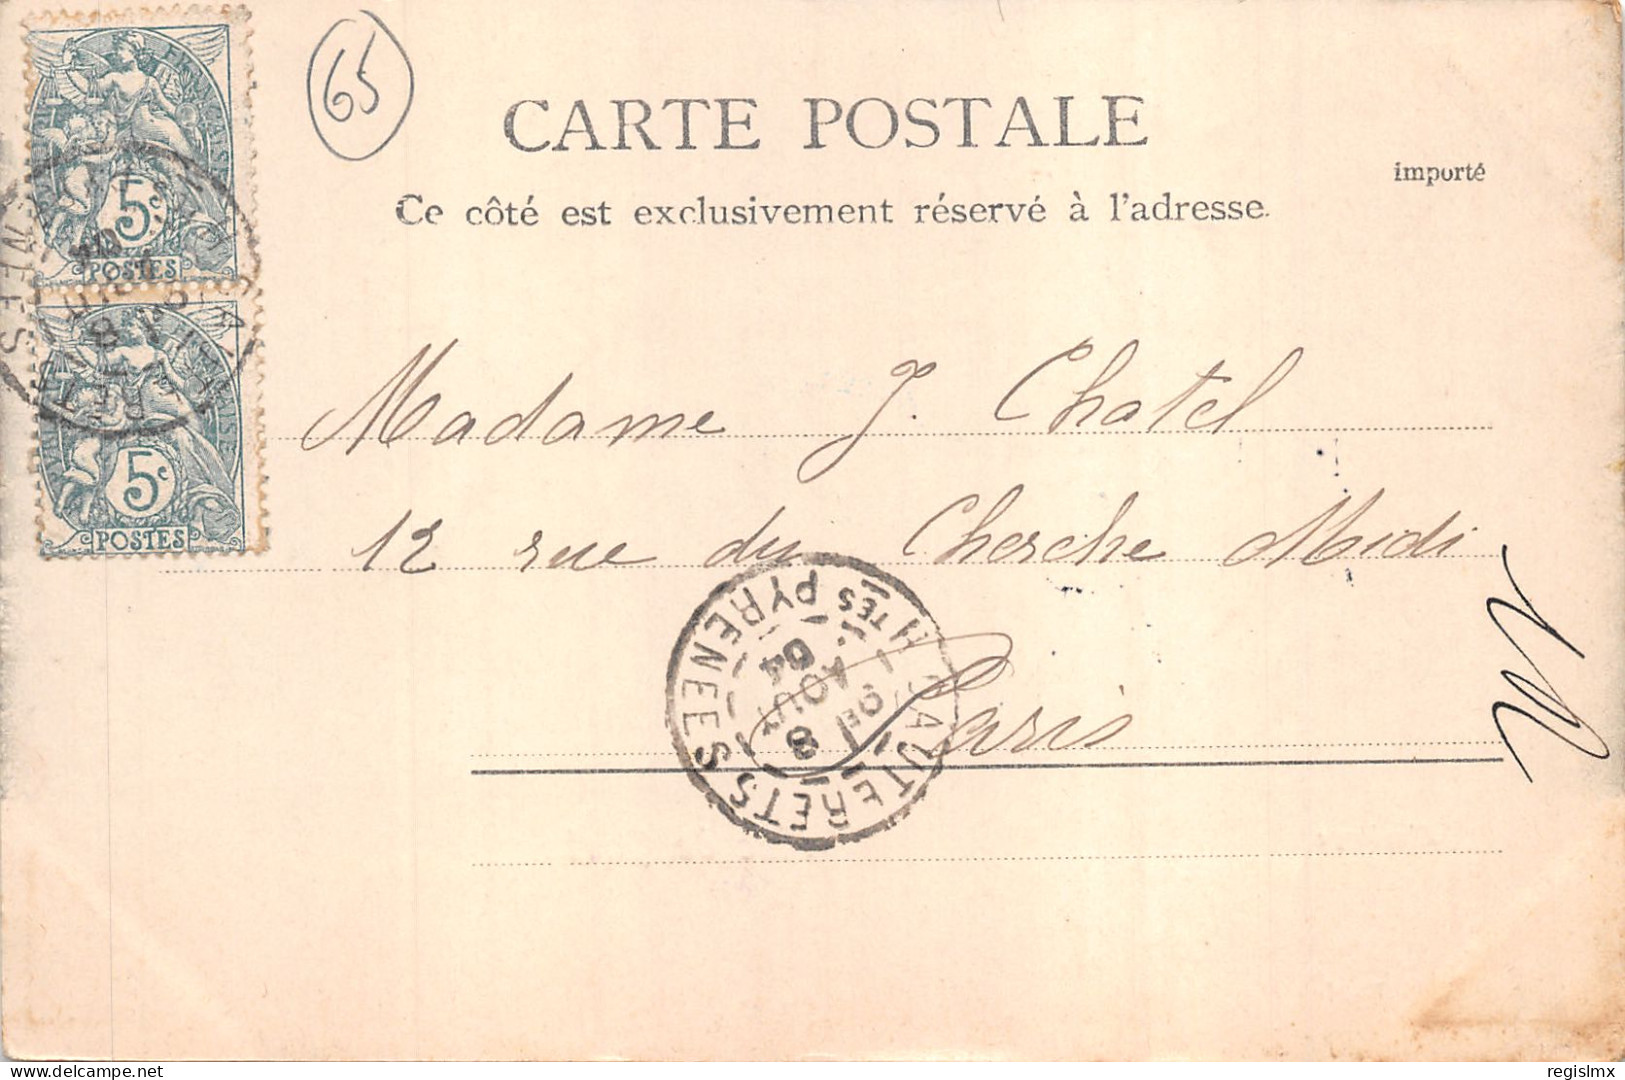 65
CARTE POSTALE
importé
Ce côté est exclusivement réservé à l'adresse.
5c
POSTES
5c
POSTES
Madame J. Chatel
12 rue du Cherche Midi
Paris
CAUTERETS
HTES PYRENEES
8
AOUT
04
delcampe.net
regislmx